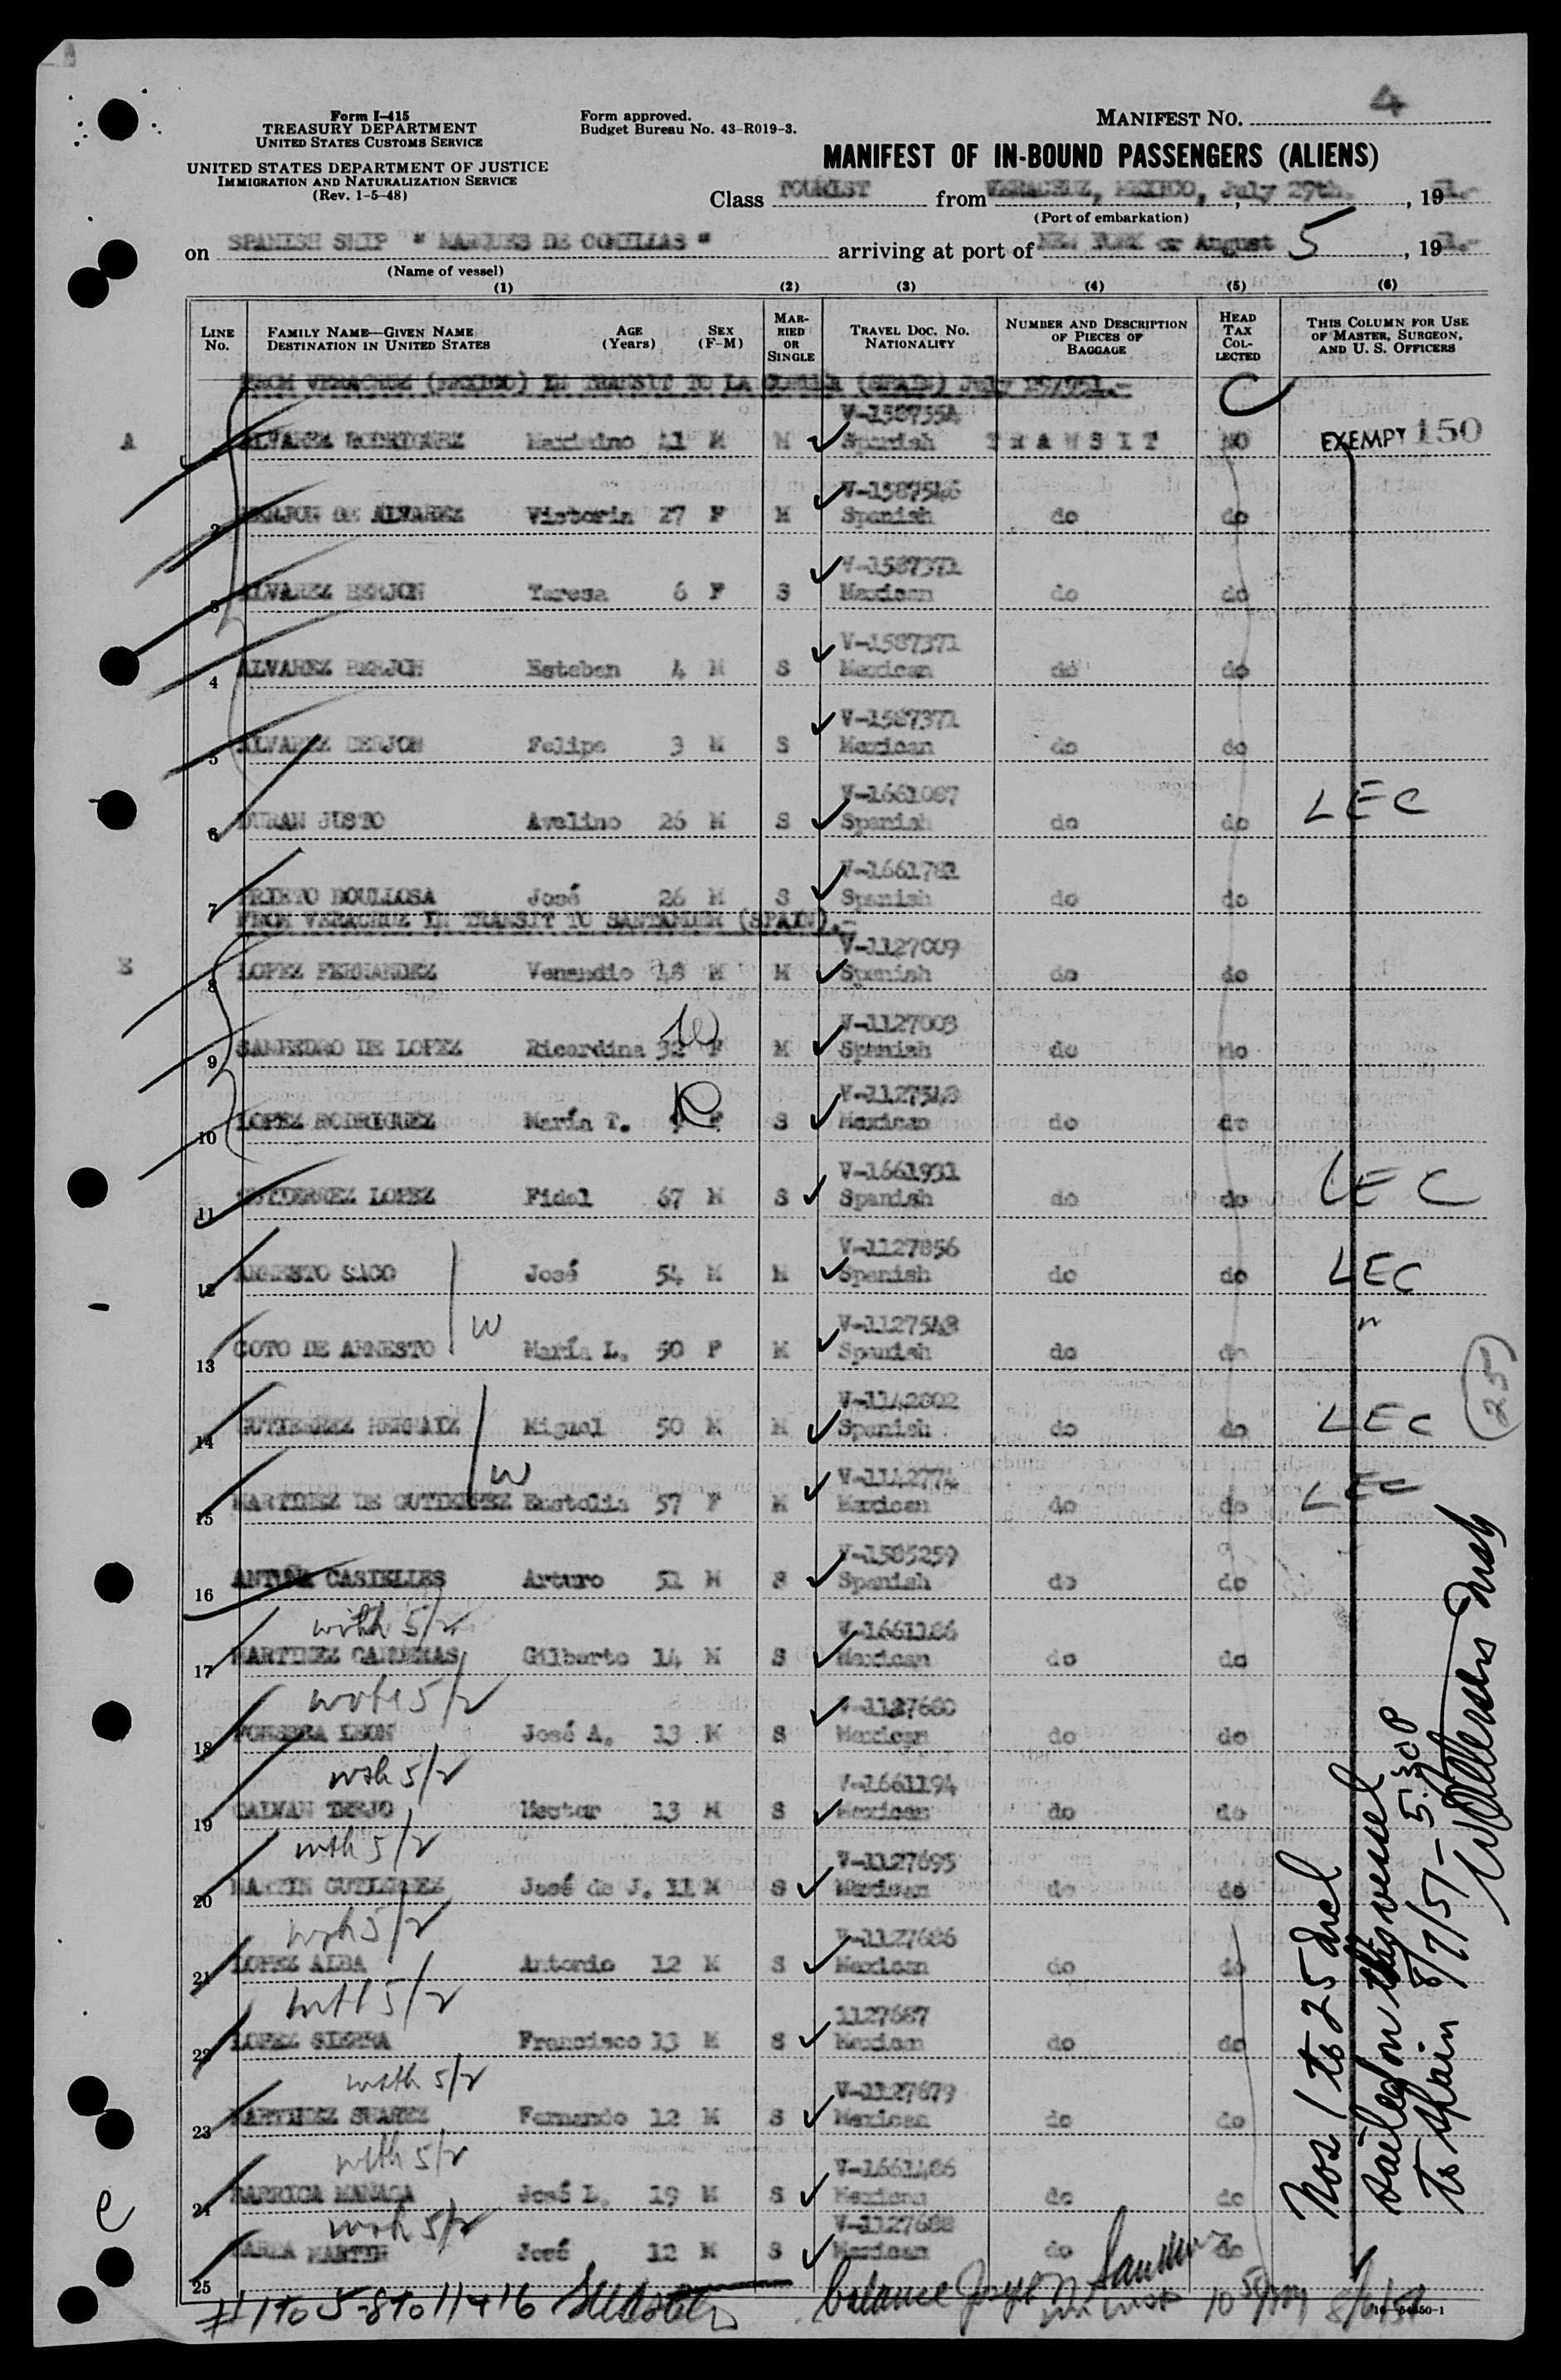 4
Form I-415
TREASURY DEPARTMENT
UNITED STATES CUSTOMS SERVICE
UNITED STATES DEPARTMENT OF JUSTICE
IMMIGRATION AND NATURALIZATION SERVICE
(Rev. 1-5-48)
Form approved.
Budget Bureau No. 43-R019-3.
MANIFEST NO.
MANIFEST OF IN-BOUND PASSENGERS (ALIENS)
Class TOURIST from VERACRUZ, MEXICO, July 29th. , 19 51.-
(Port of embarkation)
on SPANISH SHIP " MARQUES DE COMILLAS " arriving at port of NEW YORK or August 5 , 19 51.-
(Name of vessel)
(1) (2) (3) (4) (5) (6)
LINE No. FAMILY NAME—GIVEN NAME DESTINATION IN UNITED STATES AGE (Years) SEX (F-M) MARRIED OR SINGLE TRAVEL DOC. NO. NATIONALITY NUMBER AND DESCRIPTION OF PIECES OF BAGGAGE HEAD TAX COLLECTED THIS COLUMN FOR USE OF MASTER, SURGEON, AND U. S. OFFICERS
FROM VERACRUZ (MEXICO) IN TRANSIT TO LA CORUÑA (SPAIN) July 29/951.-
V-1587554
A 1 ALVAREZ RODRIGUEZ Maximino 41 M M Spanish T R A N S I T NO EXEMPT 150
V-1587546
2 BERJON DE ALVAREZ Victoria 27 F M Spanish do do
V-1587371
3 ALVAREZ BERJON Teresa 6 F S Mexican do do
V-1587371
4 ALVAREZ BERJON Esteban 4 M S Mexican do do
V-1587371
5 ALVAREZ BERJON Felipe 3 M S Mexican do do
V-1661087
6 DURAN JUSTO Avelino 26 M S Spanish do do LEC
V-1661781
7 PRIETO BOULLOSA José 26 M S Spanish do do
FROM VERACRUZ IN TRANSIT TO SANTANDER (SPAIN).-
V-1127009
8 LOPEZ FERNANDEZ Venandio 48 M M Spanish do do
V-1127003
9 SANPEDRO DE LOPEZ Ricardina 32 F M Spanish do do
10 LOPEZ RODRIGUEZ María T. F S Mexican do do
V-1661931
11 GUTIERREZ LOPEZ Fidel 67 M S Spanish do do LEC
V-1127856
12 ARNESTO SACO José 54 M M Spanish do do LEC
V-1127548
13 COTO DE ARNESTO W María L. 50 F M Spanish do do "
V-1142802
14 GUTIERREZ HERNAIZ Miguel 50 M M Spanish do do LEC
(25)
V-1142774
15 MARTINEZ DE GUTIERREZ W Eustolia 57 F M Mexican do do LEC
V-1585259
16 ANTUÑA CASIELLES Arturo 51 M S Spanish do do
with 5/2
V-1661186
17 MARTINEZ CARDENAS Gilberto 14 M S Mexican do do
with 5/2
V-1127680
18 FONSECA LEON José A. 13 M S Mexican do do
with 5/2
V-1661194
19 GALVAN TREJO Hector 13 M S Mexican do do
with 5/2
V-1127695
20 MARTIN GUTIERREZ José de J. 11 M S Mexican do do
with 5/2
V-1127686
21 LOPEZ ALBA Antonio 12 M S Mexican do do
with 5/2
1127687
22 LOPEZ SIERRA Francisco 13 M S Mexican do do
with 5/2
V-1127679
23 MARTINEZ SUAREZ Fernando 12 M S Mexican do do
with 5/2
V-1661486
24 BARRICA MANAGA José L. 19 M S Mexican do do
with 5/2
V-1127688
25 MARTIN José 12 M S Mexican do do
Nos 1 to 25 incl
sailed on this vessel
to Spain 8/7/51 - 5:30P
# 1 to 5 - 8 to 11 + 16
balance Joseph 8/6/51
16-54650-1
e